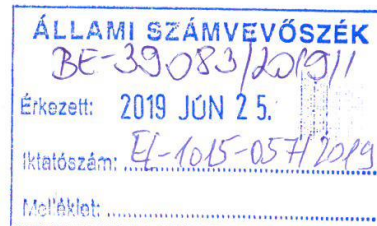 ÁLLAMI SZÁMVEVŐSZÉK
BE-39083/2019/1
Érkezett: 2019 JÚN 25.
Iktatószám: EL-1015-057/2019
Melléklet: